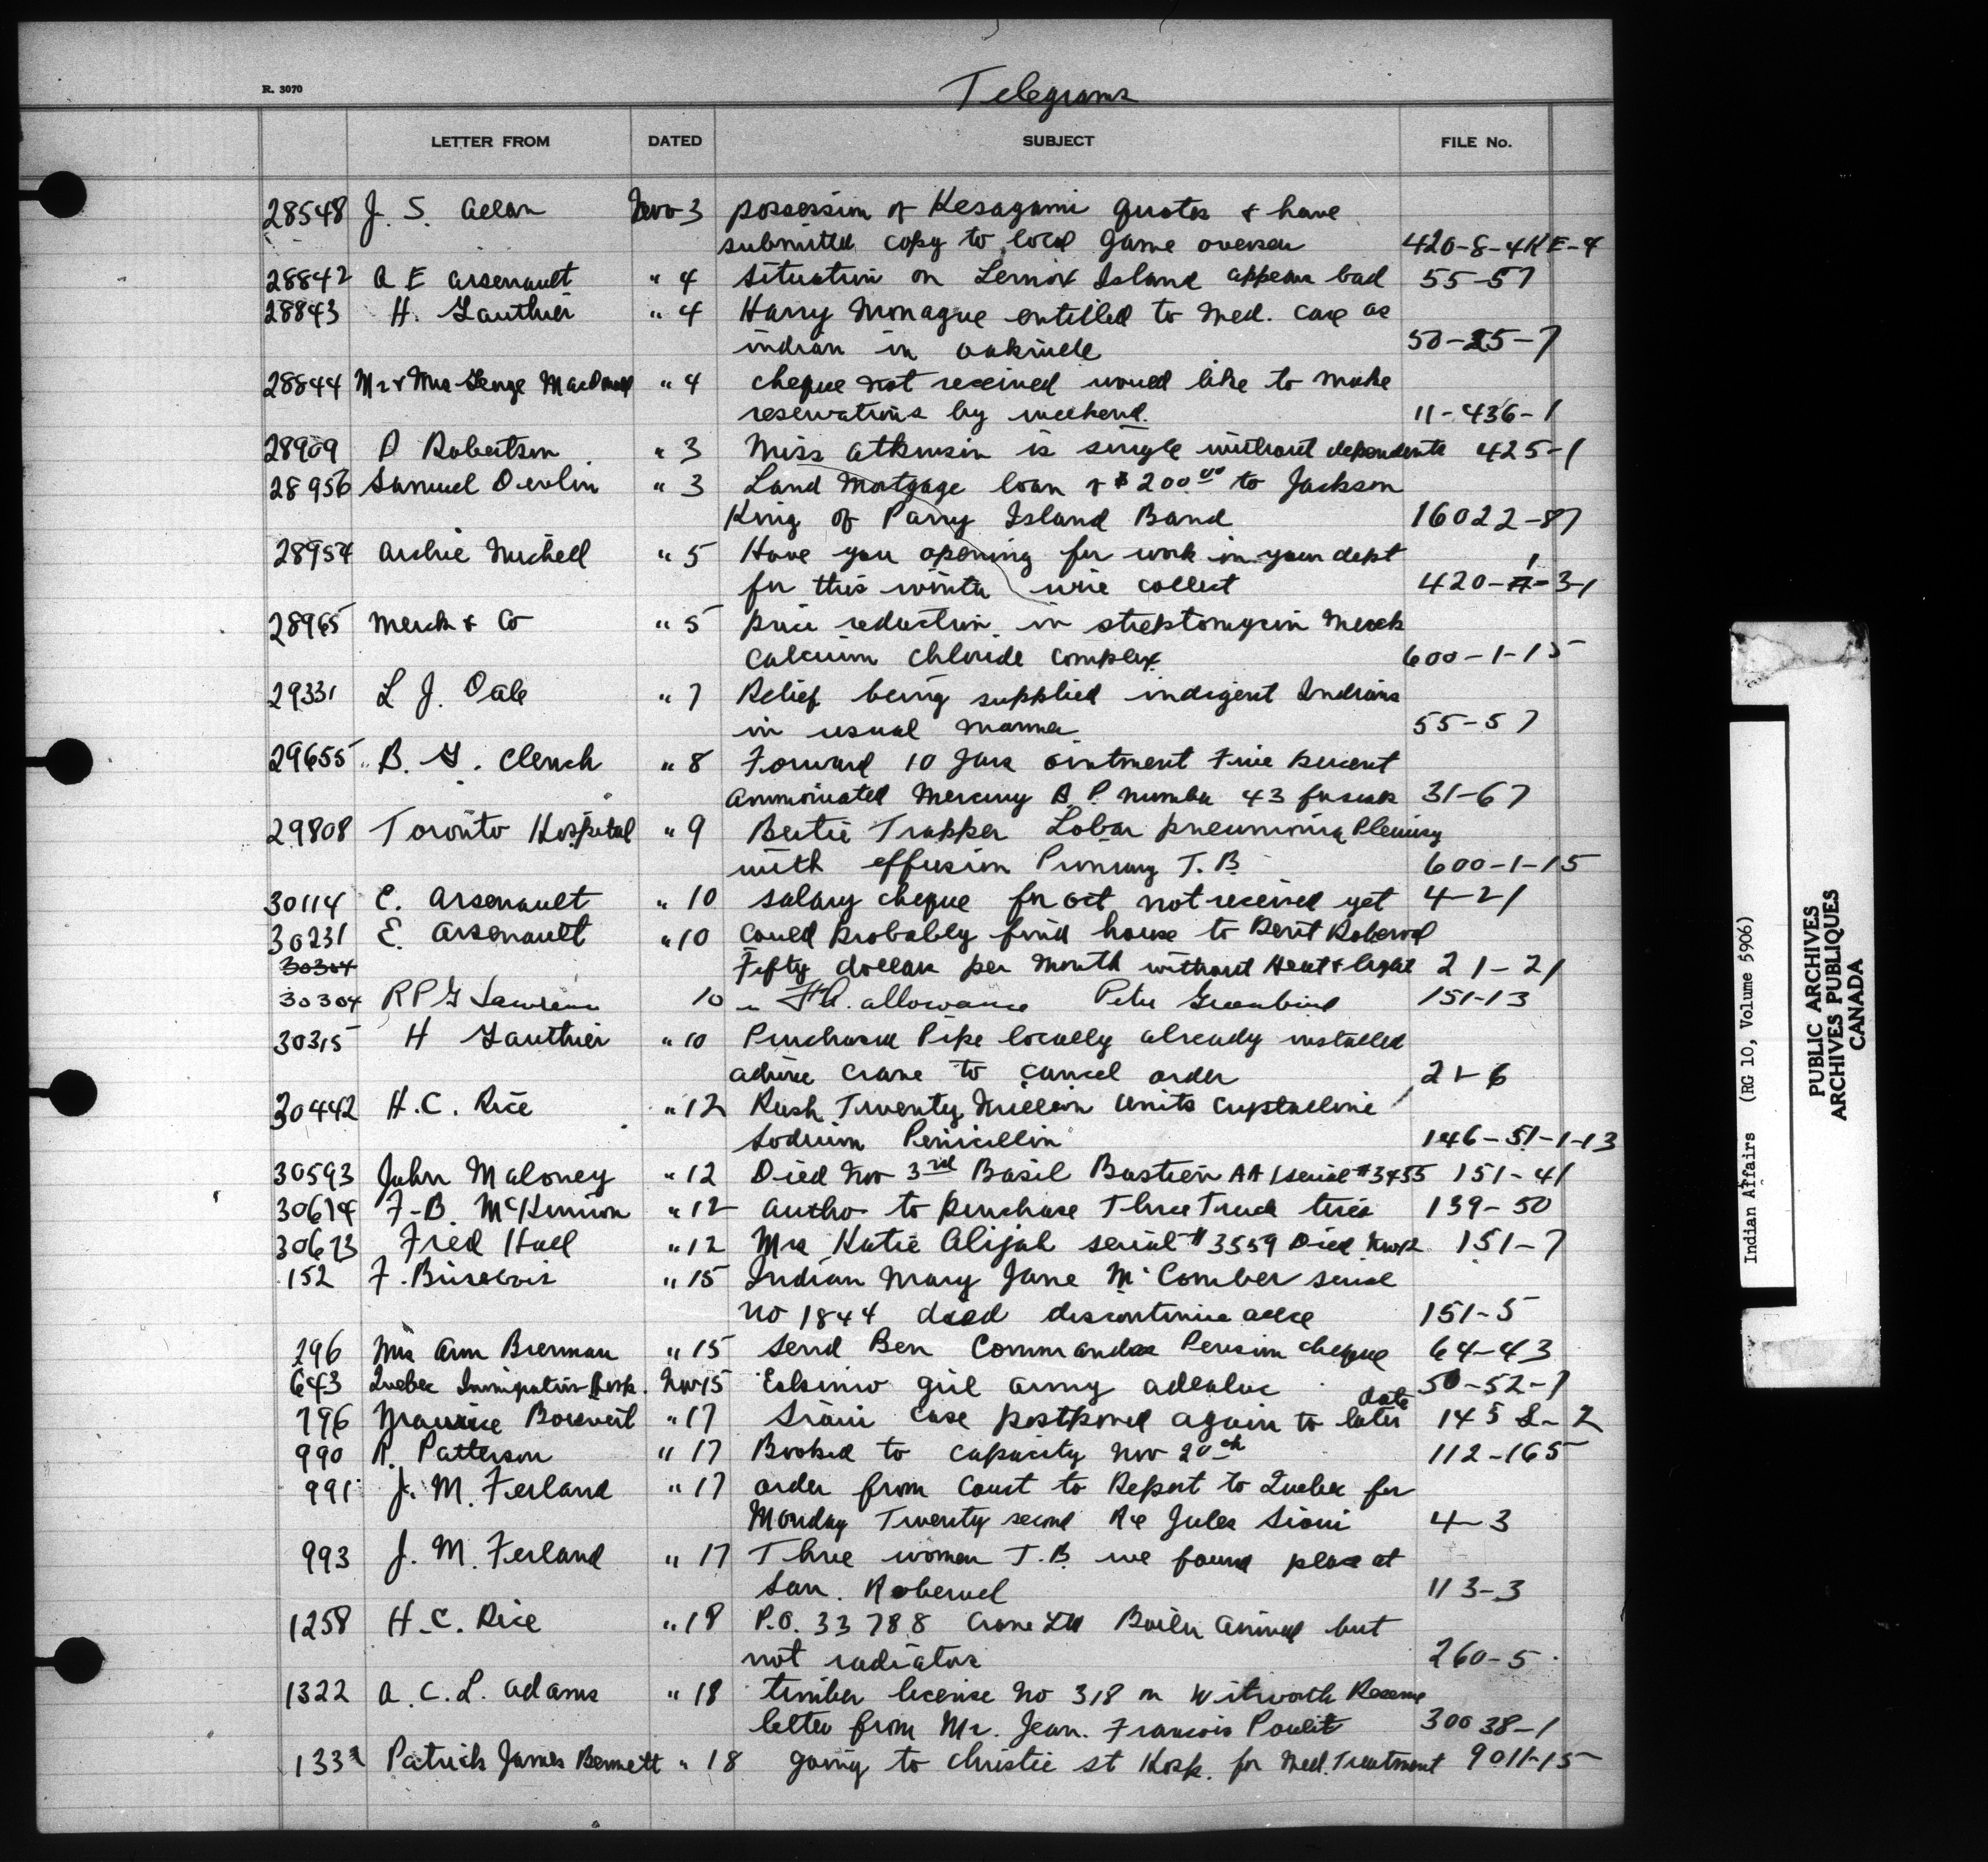 Telegrams
R. 3070
LETTER FROM DATED SUBJECT FILE No.
28548 J. S. Allan Nov 3 possession of Kesagami quotas & have
submitted copy to local game overseer 420-8-4KE-4
28842 A E Arsenault " 4 Situation on Lennox Island appears bad 55-57
28843 H. Gauthier " 4 Harry Monague entitled to Med. care as
indian in Oakville 50-25-7
28844 Mr & Mrs George MacDonald " 4 cheque not received would like to make
reservations by weekend. 11-436-1
28909 D Robertson " 3 Miss Atkinson is single without dependents 425-1
28956 Samuel Devlin " 3 Land Mortgage loan of $200.00 to Jackson
King of Parry Island Band 16022-87
28957 Archie Michell " 5 Have you opening for work in your dept
for this winter wire collect 420-1-3-1
28965 Merck & Co " 5 price reduction in streptomycin Merck
Calcium chloride complex 600-1-15
29331 L J. " 7 Relief being supplied indigent Indians
in usual manner 55-57
29655 B. G. Clench " 8 Forward 10 Jars ointment Five percent
Ammoniated Mercury B.P. number 43 31-67
29808 Toronto Hospital " 9 Bertie Trapper Lobar pneumonia Pleurisy
with effusion Primary T.B. 600-1-15
30114 E. Arsenault " 10 salary cheque for oct not received yet 4-21
30231 E. Arsenault " 10 Could probably find house to Rent Roberval
30304 Fifty dollars per month without Heat & light 21-21
30304 R P G Lawrence 10 " F.A. allowance Peter Greenbird 151-13
30315 H Gauthier " 10 Purchased Pipe locally already installed
advise Crane to cancel order 21-6
30442 H. C. Rice " 12 Rush Twenty Million units Crystalline
Sodium Penicillin 146-51-1-13
30593 John Maloney " 12 Died Nov 3rd Basil Bastien AA/serial #3455 151-41
30674 F-B. McKinnon " 12 autho to purchase Three Truck tires 139-50
30673 Fred Hall " 12 Mrs Katie Alijah serial # 3559 Died Nov 12 151-7
152 F. Brisebois " 15 Indian Mary Jane McComber serial
no 1844 dead discontinue allce 151-5
296 Mrs Ann Brennan " 15 send Ben Commanda Pension cheque 64-43
643 Quebec Immigration Hosp. Nov 15 Eskimo girl 50-52-7
date
796 Maurice Boisvert " 17 Sioui case postponed again to later 145-2
990 R. Patterson " 17 Booked to capacity Nov 20th 112-165
991 J. M. Ferland " 17 order from Court to Report to Quebec for
Monday Twenty second Re Jules Sioui 4-3
993 J. M. Ferland " 17 Three women T.B. we found place at
San. Roberval 113-3
1258 H. C. Rice " 18 P.O. 33788 Crane Ltd Boiler arrived but
not radiators 260-5
1322 A. C. L. Adams " 18 timber license no 318 on Witworth Reserve
letter from Mr. Jean. Francois Pouliot 30038-1
133 Patrick James Bennett " 18 going to Christie St Hosp. for Med. Treatment 9011-15
Indian Affairs (RG 10, Volume 5906)
PUBLIC ARCHIVES
ARCHIVES PUBLIQUES
CANADA